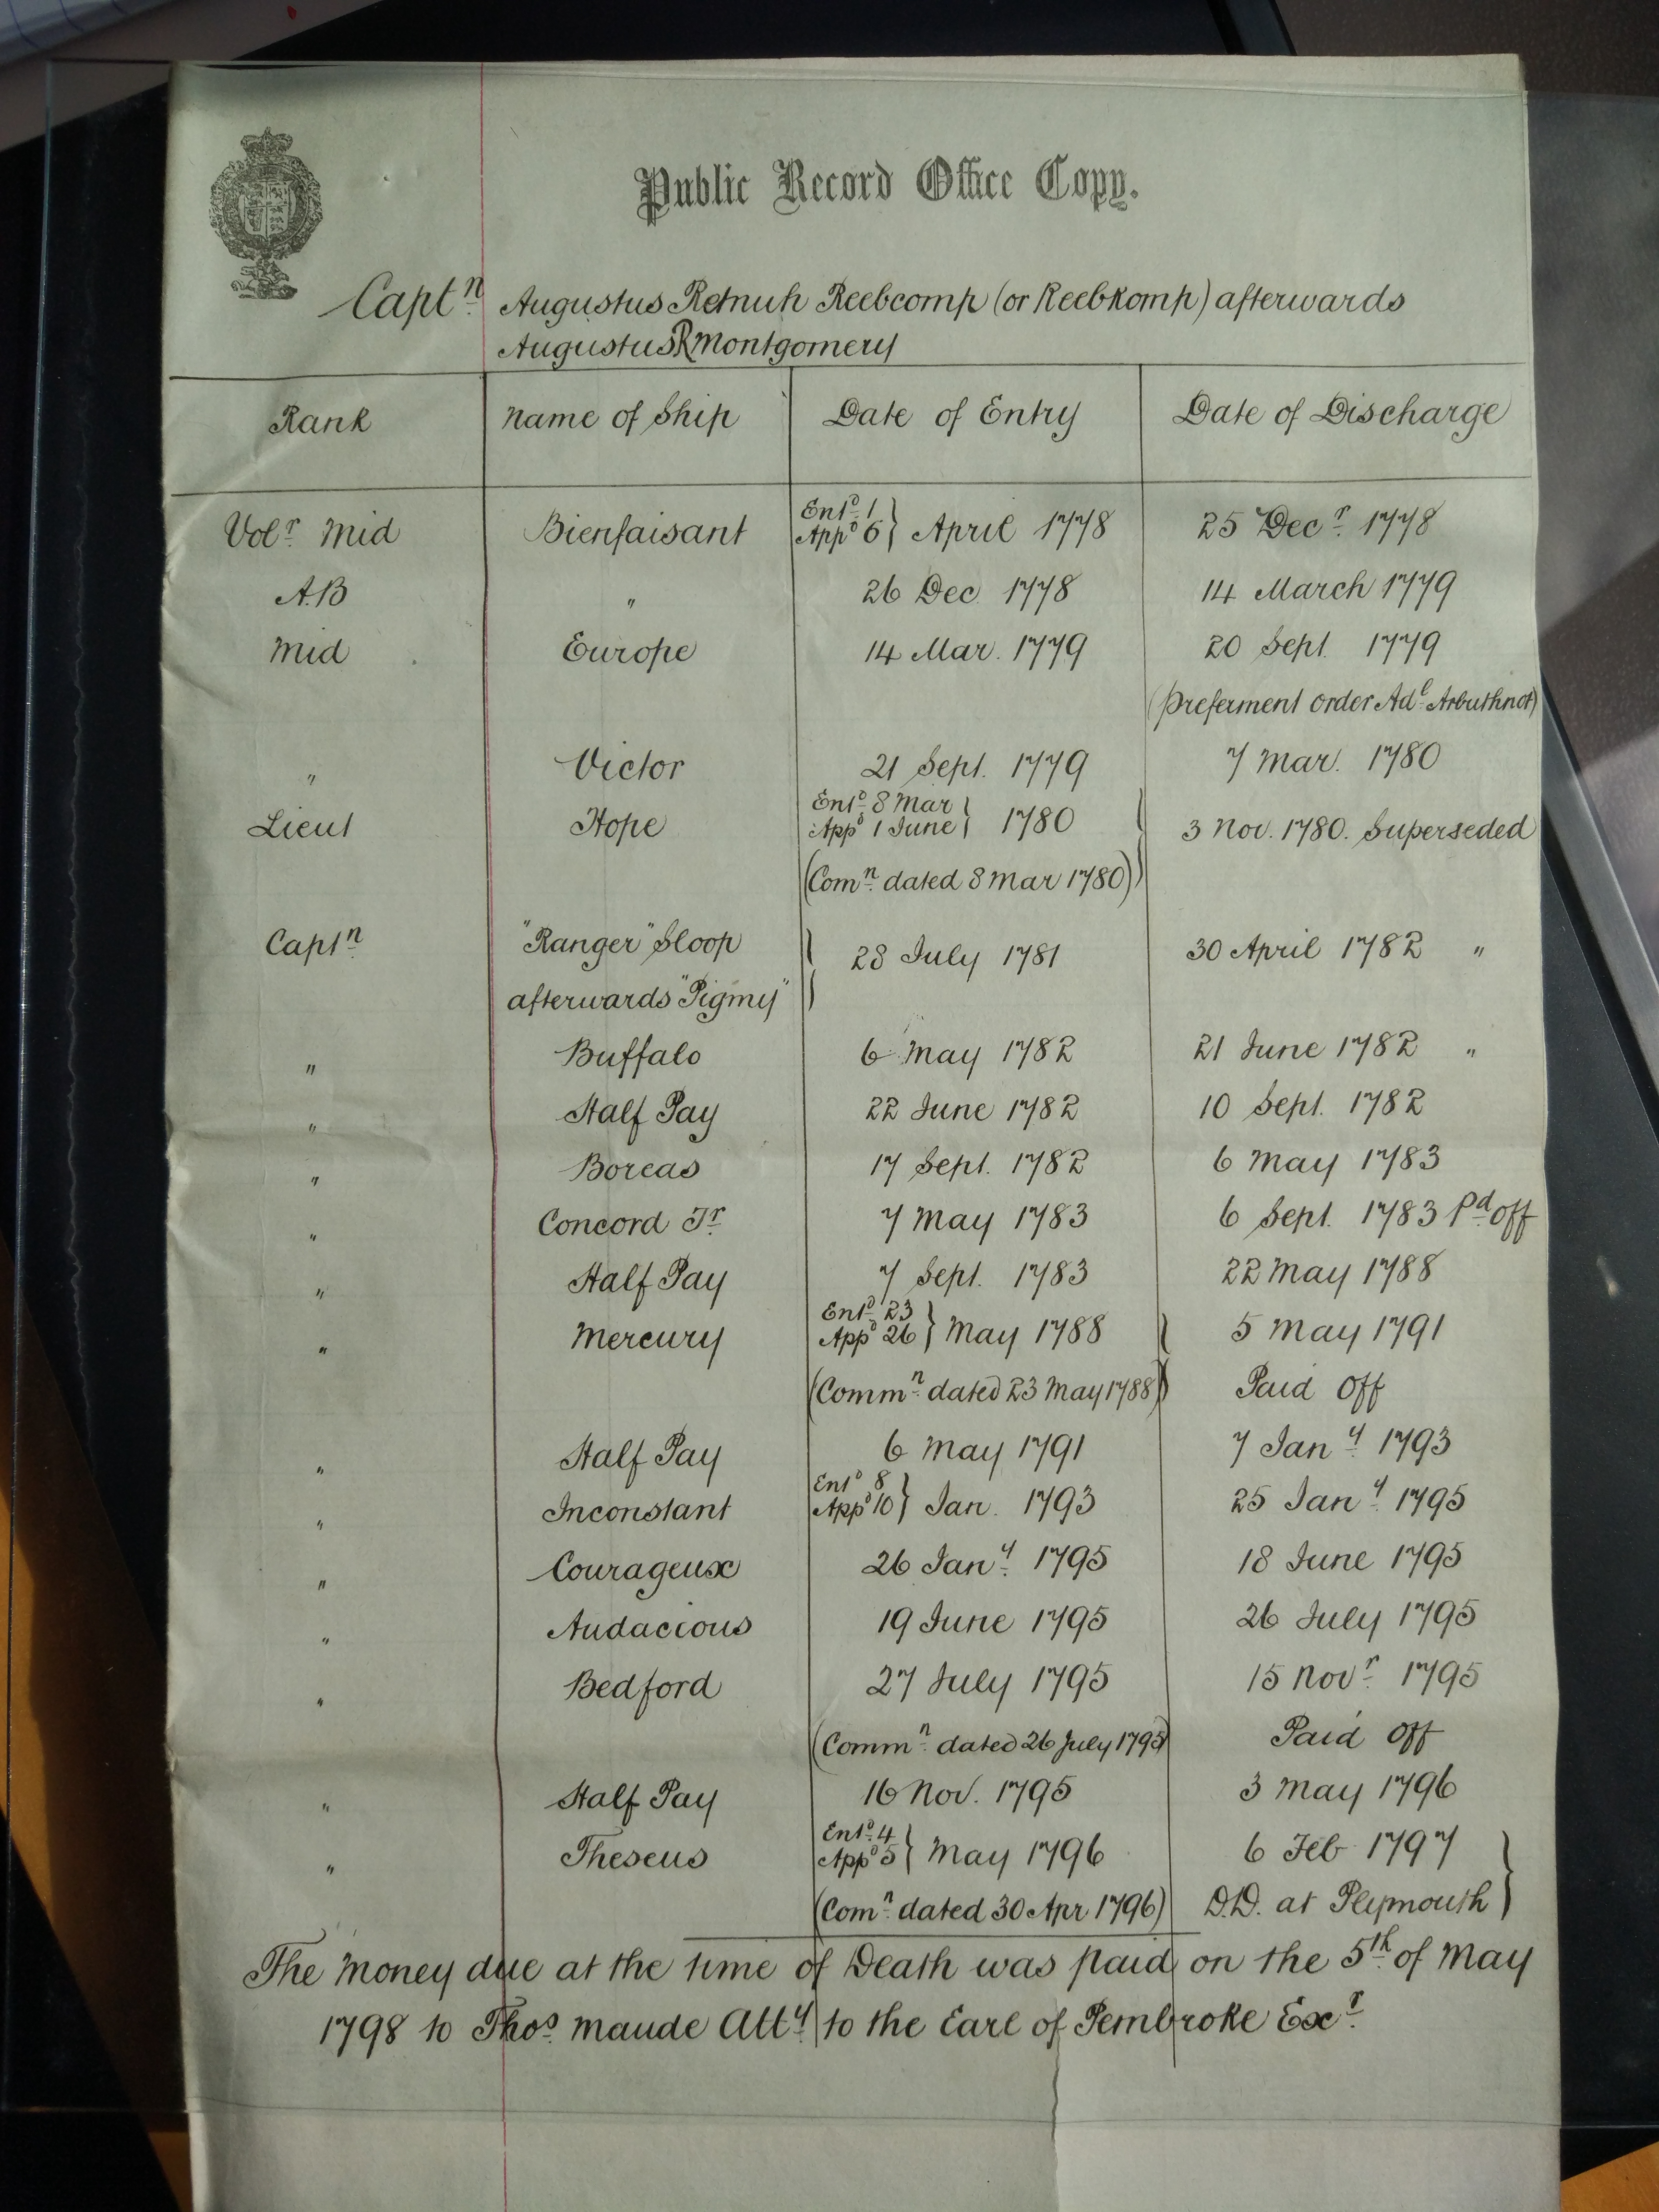 Public Record Office Copy.
Captn Augustus Retnuh Reebcomp (or Reebkomp) afterwards
Augustus R Montgomery
Rank Name of Ship Date of Entry Date of Discharge
Volr Mid Bienfaisant Entd 1 Appd 6 } April 1778 25 Decr 1778
A.B " 26 Dec 1778 14 March 1779
Mid Europe 14 Mar. 1779 20 Sept. 1779
(Preferment order Adl Arbuthnot)
" Victor 21 Sept. 1779 7 Mar. 1780
Lieut Hope Entd 8 Mar Appd 1 June } 1780 3 Nov. 1780. Superseded
(Comn dated 8 Mar 1780)
Captn "Ranger" Sloop 28 July 1781 30 April 1782 "
afterwards "Pigmy"
" Buffalo 6 May 1782 21 June 1782 "
" Half Pay 22 June 1782 10 Sept. 1782
" Boreas 17 Sept. 1782 6 May 1783
" Concord Fr 7 May 1783 6 Sept. 1783 Pd off
" Half Pay 7 Sept. 1783 22 May 1788
" Mercury Entd 23 Appd 26 } May 1788 5 May 1791
(Commn dated 23 May 1788) Paid Off
" Half Pay 6 May 1791 7 Jany 1793
" Inconstant Entd 8 Appd 10 } Jan. 1793 25 Jany 1795
" Courageux 26 Jany 1795 18 June 1795
" Audacious 19 June 1795 26 July 1795
" Bedford 27 July 1795 15 Novr 1795
(Commn dated 26 July 1795) Paid Off
" Half Pay 16 Nov. 1795 3 May 1796
" Theseus Entd 4 Appd 5 } May 1796 6 Feb 1797
(Comn dated 30 Apr 1796) D.D. at Plymouth
The Money due at the time of Death was paid on the 5th of May
1798 to Thos Maude Atty to the Earl of Pembroke Exr